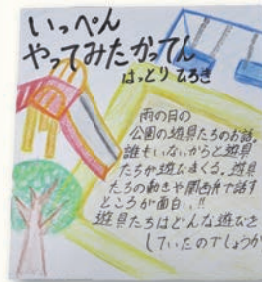 いっぺん
やってみたかってん
はっとりひろき
雨の日の
公園の遊具たちのお話。
誰もいないからと遊具
たちが遊びまくる。遊具
たちの動きや関西弁で話す
ところが面白い!!
遊具たちはどんな遊びを
していたのでしょうか